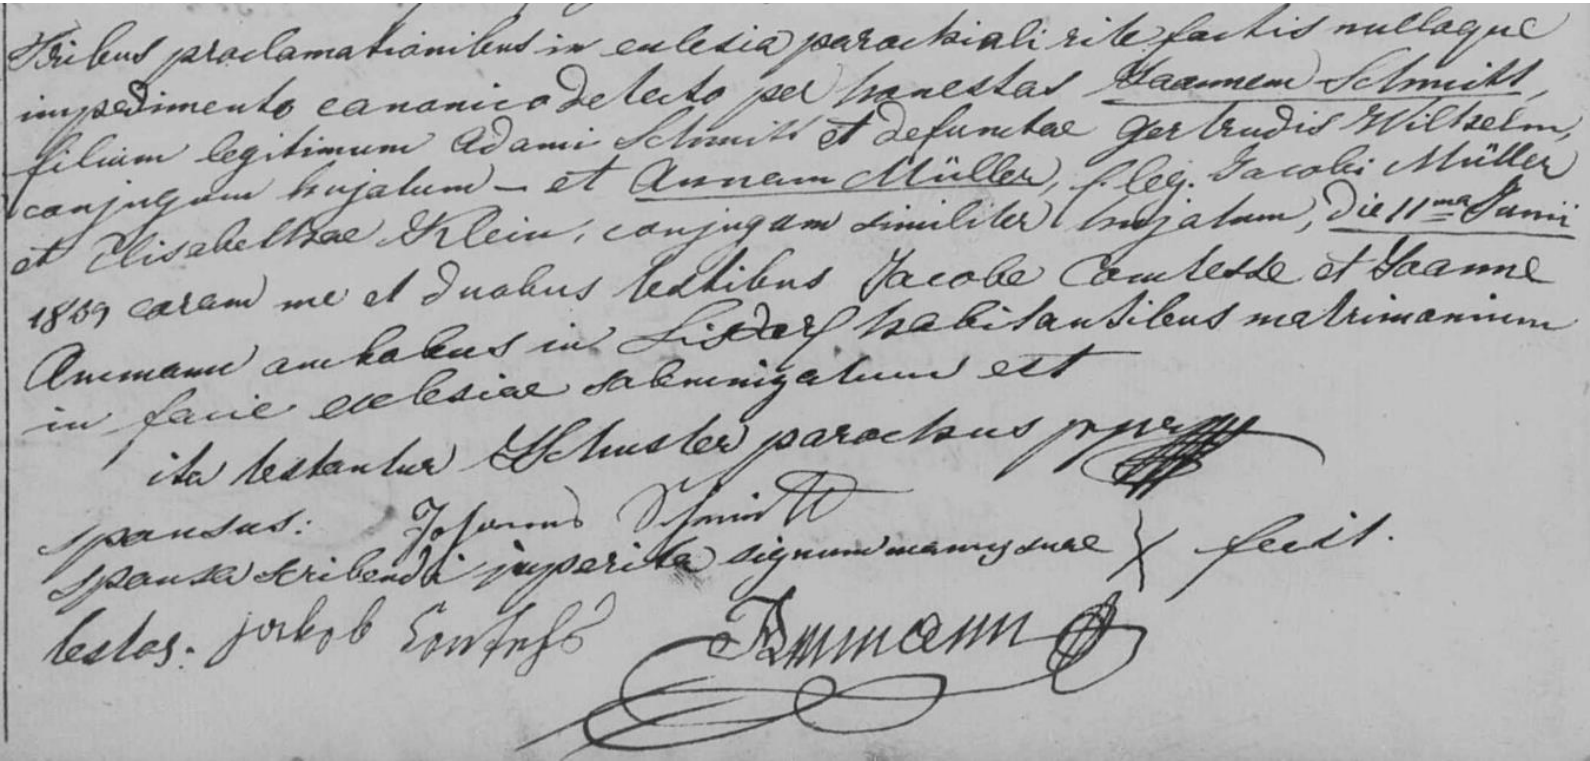 Tribus proclamationibus in eclesia parochiali rite factis nulloque
impedimento canonico detecto per honestos Joannem Schmitt,
filium legitimum Adami Schmitt et defunctae Gertrudis Wilhelm,
conjugum hujatum – et Annam Müller, f. leg. Jacobi Müller
et Elisabethae Klein, conjugum similiter hujatum, die 11ma Junii
1859 coram me et duobus testibus Jacobo Comtesse et Joanne
Ammann ambobus in Lisdorf habitantibus matrimonium
in facie ecclesiae solemnizatum est
ita testantur Schuster parochus
sponsus: Johannes Schmitt
sponsa scribendi imperita signum manus suae X fecit.
testes: jakob Contesse Ammann